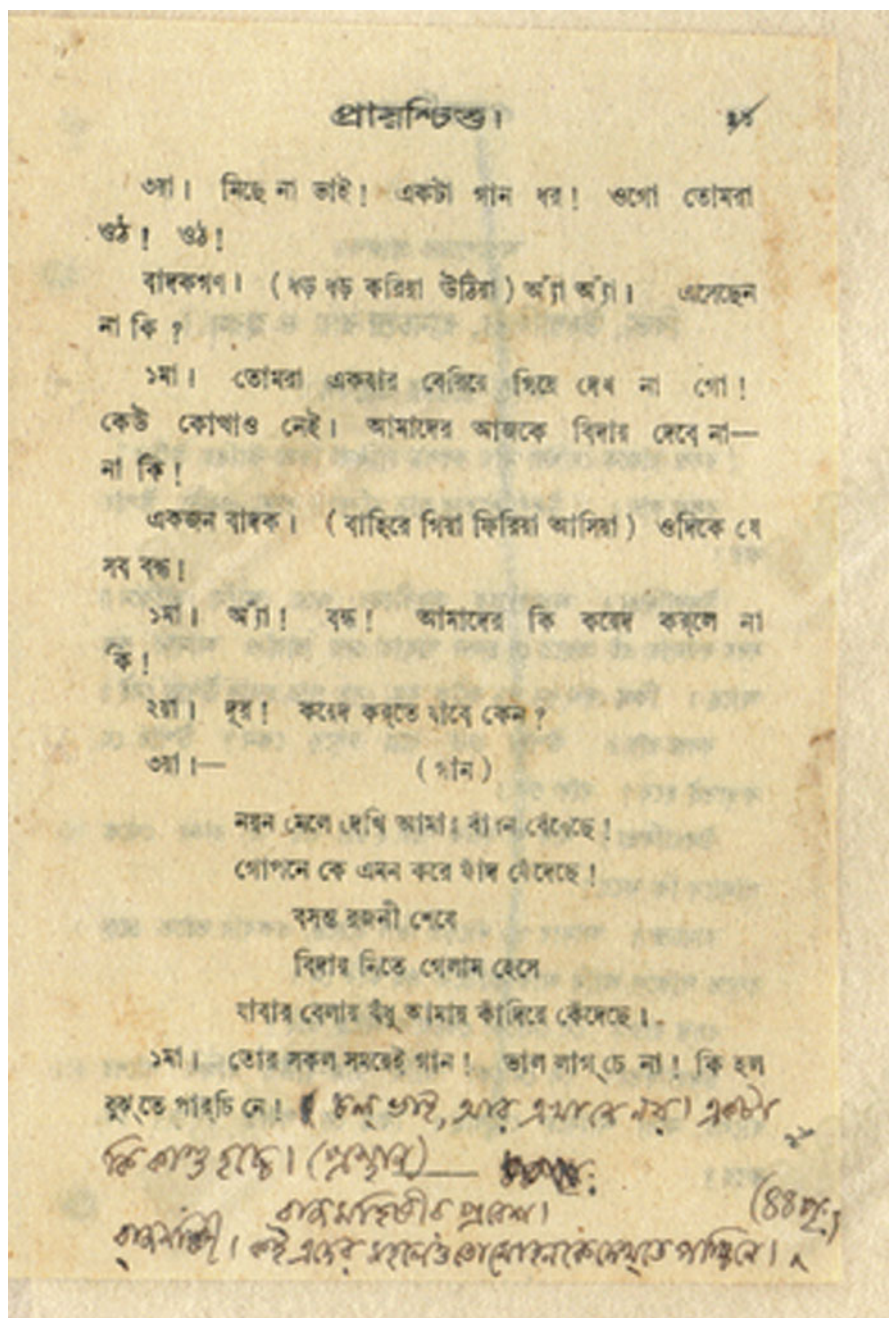 প্রায়শ্চিত্ত।
৩য়া। মিছে না ভাই! একটা গান ধর! ওগো তোমরা
ওঠ! ওঠ!
বাদকগণ। (ধড় ধড় করিয়া উঠিয়া) অ্যাঁ অ্যাঁ। এসেছেন
না কি?
১মা। তোমরা একবার বেরিয়ে গিয়ে দেখ না গো!
কেউ কোত্থাও নেই। আমাদের আজকে বিদায় দেবে না—
না কি!
একজন বাদক। (বাহিরে গিয়া ফিরিয়া আসিয়া) ওদিকে যে
সব বন্ধ!
১মা। অ্যাঁ! বন্ধ! আমাদের কি কয়েদ কর্‌লে না
কি!
২য়া। দূর! কয়েদ কর্‌তে যাবে কেন?
৩য়া।— (গান)
নয়ন মেলে দেখি আমায় বাঁধন বেঁধেছে!
গোপনে কে এমন করে ফাঁদ ফেঁদেছে!
বসন্ত রজনী শেষে
বিদায় নিতে গেলাম হেসে
যাবার বেলায় বঁধু আমায় কাঁদিয়ে কেঁদেছে।
১মা। তোর সকল সময়েই গান! ভাল লাগ্‌চে না! কি হল
বুঝ্‌তে পার্‌চি নে! চল্ ভাই, আর এখানে নয়। একটা
কি কাণ্ড হচ্চে। (প্রস্থান)—
রাজমহিষীর প্রবেশ।
(৪৪ পৃঃ)
রাজমহিষী। কই এদের মহলেও তো মোহনকে দেখ্‌তে পাচ্চিনে।